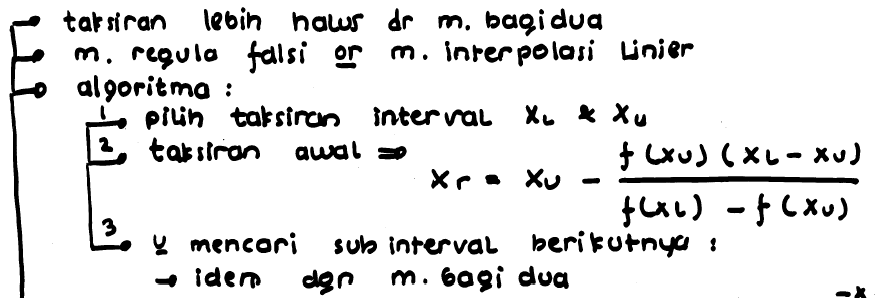 taksiran lebih halus dr m. bagi dua
m. regula falsi or m. interpolasi Linier
algoritma :
1 pilih taksiran interval XL & Xu
2 taksiran awal ⇒ Xr = XU - f(XU)(XL - XU) / f(XL) - f(XU)
3 U mencari sub interval berikutnya :
→ idem dgn m. bagi dua
-x